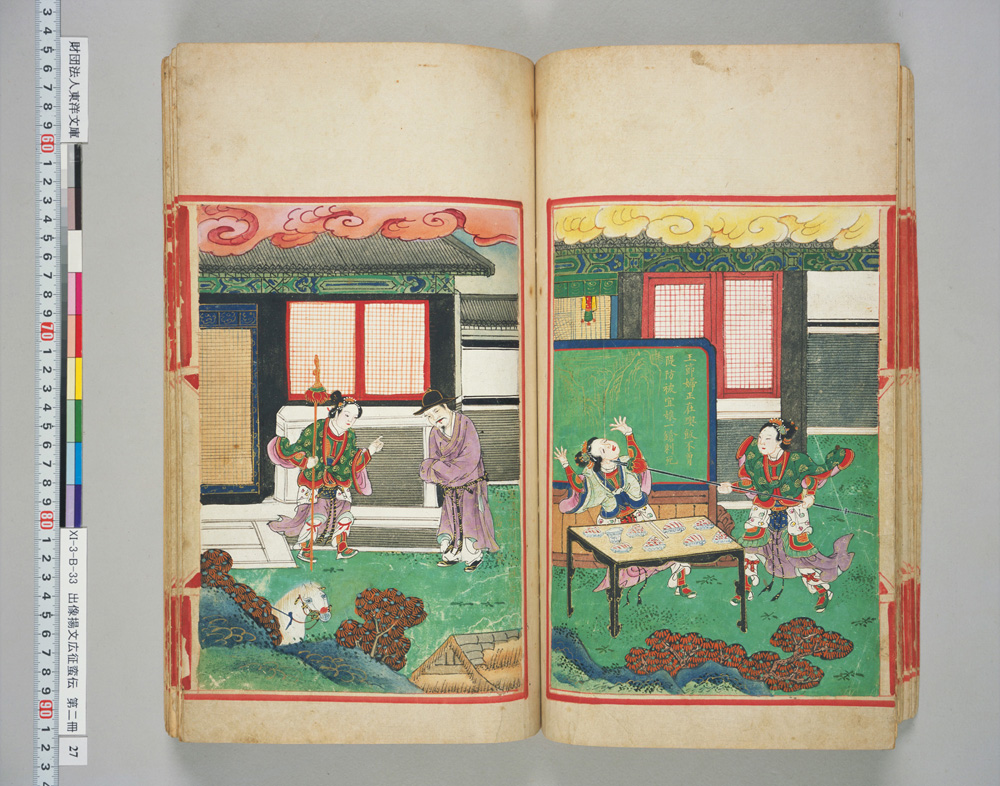 3 4 5 6 7 8 9 60 1 2 3 4 5 6 7 8 9 70 1 2 3 4 5 6 7 8 9 80 1 2 3 4 5 6 7 8 9 90 1 2 3 4
財団法人東洋文庫
XI-3-B-33 出像揚文広征蛮伝 第二冊
27
王節婦正在不
隄防被宜娘一鎗刺死